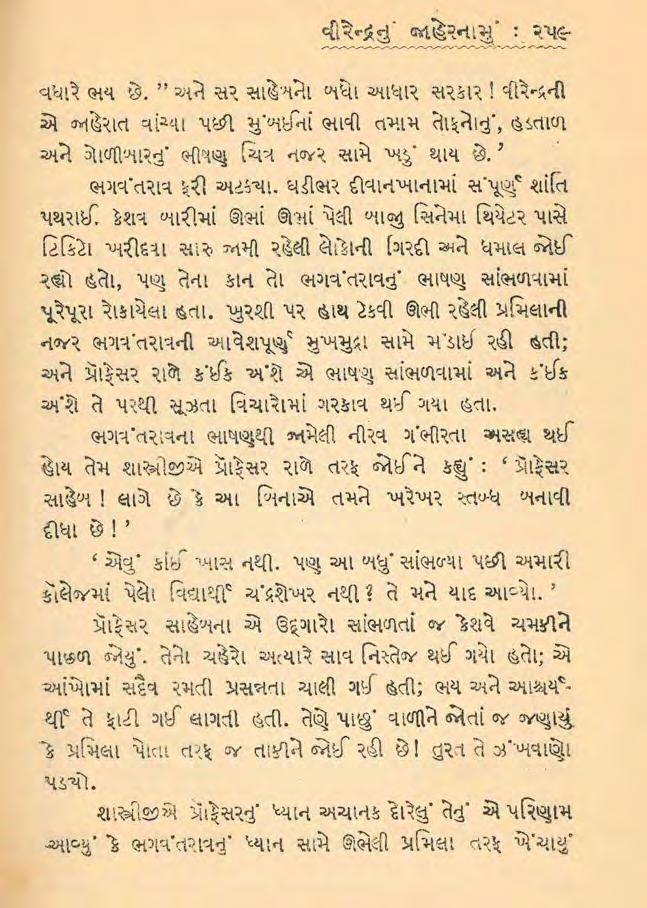 વીરેન્દ્રનું જાહેરનામું : ૨૫૯
વધારે ભય છે. ” અને સર સાહેબનો બધો આધાર સરકાર ! વીરેન્દ્રની
એ જાહેરાત વાંચ્યા પછી મુંબઈનાં ભાવી તમામ તોફનોનું, હડતાળ
અને ગોળીબારનું ભીષણ ચિત્ર નજર સામે ખડું થાય છે. ’
ભગવંતરાવ ફરી અટક્યા. ઘડીભર દીવાનખાનામાં સંપૂર્ણ શાંતિ
પથરાઈ. કેશવ બારીમાં ઊભાં ઊભાં પેલી બાજુ સિનેમા થિયેટર પાસે
ટિકિટો ખરીદવા સારુ જામી રહેલી લોકોની ગિરદી અને ધમાલ જોઈ
રહ્યો હતો, પણ તેના કાન તો ભગવંતરાવનું ભાષણ સાંભળવામાં
પૂરેપૂરા રોકાયેલા હતા. ખુરશી પર હાથ ટેકવી ઊભી રહેલી પ્રમિલાની
નજર ભગવંતરાવની આવેશપૂર્ણ મુખમુદ્રા સામે મંડાઈ રહી હતી;
અને પ્રોફેસર રાળે કંઈક અંશે એ ભાષણ સાંભળવામાં અને કંઈક
અંશે તે પરથી સૂઝતા વિચારોમાં ગરકાવ થઈ ગયા હતા.
ભગવંતરાવના ભાષણથી જામેલી નીરવ ગંભીરતા અસહ્ય થઈ
હોય તેમ શાસ્ત્રીજીએ પ્રોફેસર રાળે તરફ જોઈને કહ્યું : ‘ પ્રોફેસર
સાહેબ ! લાગે છે કે આ બિનાએ તમને ખરેખર સ્તબ્ધ બનાવી
દીધા છે ! ’
‘ એવું કાંઈ ખાસ નથી. પણ આ બધું સાંભળ્યા પછી અમારી
કૉલેજમાં પેલો વિદ્યાર્થી ચંદ્રશેખર નથી ? તે મને યાદ આવ્યો. ’
પ્રોફેસર સાહેબના એ ઉદ્‌ગારો સાંભળતાં જ કેશવે ચમકીને
પાછળ જોયું. તેનો ચહેરો અત્યારે સાવ નિસ્તેજ થઈ ગયો હતો; એ
આંખોમાં સદૈવ રમતી પ્રસન્નતા ચાલી ગઈ હતી; ભય અને આશ્ચર્ય-
થી તે ફાટી ગઈ લાગતી હતી. તેણે પાછું વાળીને જોતાં જ જણાયું
કે પ્રમિલા પોતા તરફ જ તાકીને જોઈ રહી છે! તુરત તે ઝંખવાણો
પડ્યો.
શાસ્ત્રીજીએ પ્રોફેસરનું ધ્યાન અચાનક દોરેલું તેનું એ પરિણામ
આવ્યું કે ભગવંતરાવનું ધ્યાન સામે ઊભેલી પ્રમિલા તરફ ખેંચાયું